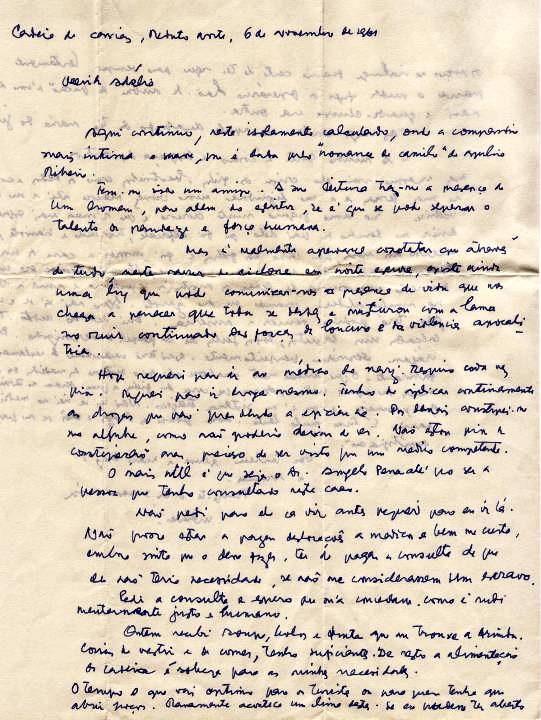 Cadeia de Caxias, Reduto norte, 6 de novembro de 1961
Aqui continuo, neste isolamento calculado, onde a companhia
mais íntima e suave, me é dada pelo "romance de Camilo" de Aquilino
Ribeiro.
Tem-me sido um amigo. A sua leitura traz-me a presença de
um homem, para além do escritor, se é que se pode separar o
talento da grandeza e força humana.
Mas é realmente constatar que através
de tudo neste de ciclone em noite escura, existe ainda
uma luz que pode comunicar-nos a presença de vida que nos
chega a parecer que toda se desfez e misturou com a lama
no ruir continuado das forças da loucura e da violência apocalí-
tica.
Hoje requeri para ir ao médico do nariz. Respiro cada vez
pior. Requeri para ir hoje mesmo. Tenho de aplicar continuamente
as drogas que vão perdendo a eficiência. Por demais constipei-me
no Aljube, como não poderia deixar de ser. Não estou pior da
constipação mas preciso de ser visto por um médico competente.
O mais útil é que seja o Dr. Angelo Pena até por ser a
pessoa que tenho consultado neste caso.
Não pedi para ele cá vir antes requeri para eu ir lá.
Não posso estar a pagar deslocações a médicos e bem me custa,
embora sinta que o devo fazer, ter de pagar a consulta de que
eu não teria necessidade, se não me considerassem um escravo.
Pedi a consulta e espero que ma concedam como é rudi
mentarmente justo e humano.
Ontem recebi roupa, e fruta que me trouxe a
Coisas de vestir e de comer, tenho suficientes. De resto a alimentação
da cadeia é sobeja para as minhas necessidades.
O tempo é que vai óptimo para o turista ou para quem tenha que
abrir poços. Raramente acontece um clima destes. Se eu pudesse ter aberto